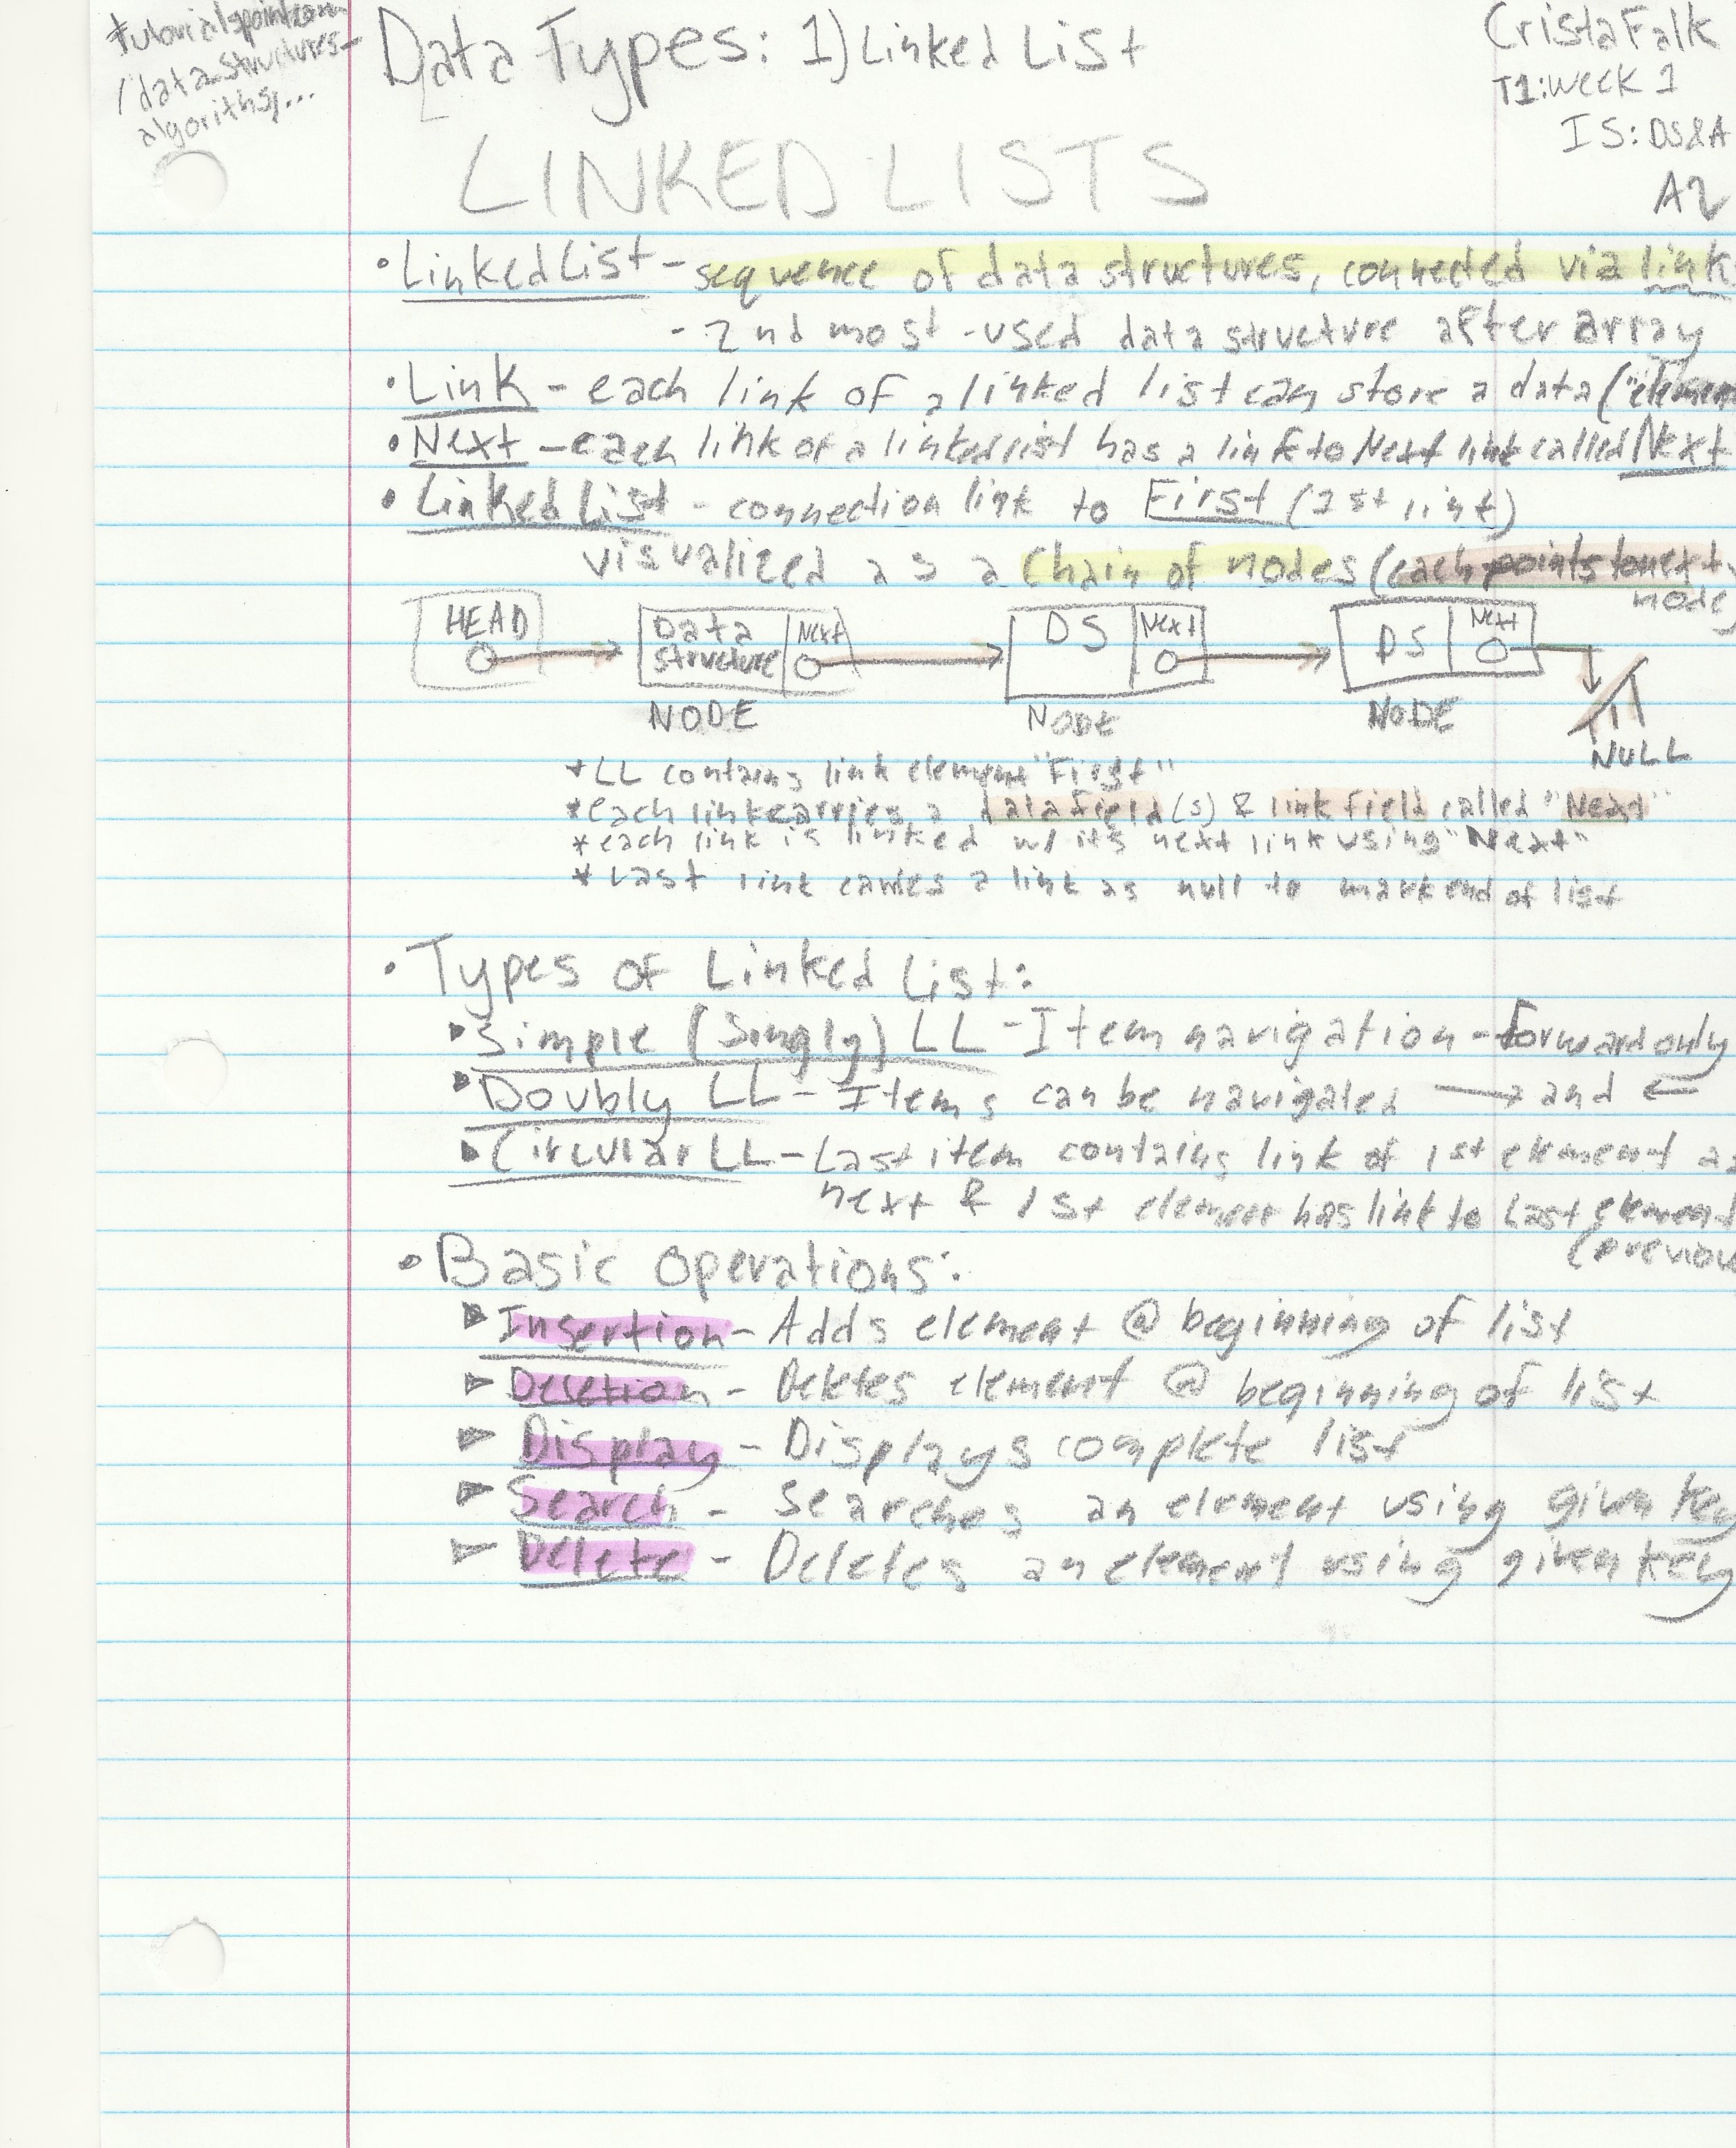 tutorialspoint.com
/data_structures_
algorithms...
Data Types: 1) Linked List
Crista Falk
T1: Week 1
IS: DS&A
A2
LINKED LISTS
• Linked List - sequence of data structures, connected via link
- 2nd most-used data structure after array
• Link - each link of a linked list can store a data ("elemen
• Next - each link of a linked list has a link to Next link called Next
• Linked List - connection link to First (1st link)
visualized as a Chain of nodes (each points to next
node
HEAD
Data Structure Next
DS Next
DS Next
NODE
NODE
NODE
NULL
* LL contains link element "First"
* each link carries a data field(s) & link field called "Next"
* each link is linked w/ its next link using "Next"
* Last link carries a link as null to mark end of list
• Types of Linked List:
▸ Simple (Singly) LL - Item navigation - forward only
▸ Doubly LL - Items can be navigated → and ←
▸ Circular LL - Last item contains link of 1st element as
next & 1st element has link to last element
(previou
• Basic Operations:
▸ Insertion - Adds element @ beginning of list
▸ Deletion - Deletes element @ beginning of list
▸ Display - Displays complete list
▸ Search - Searches an element using given key
▸ Delete - Deletes an element using given key